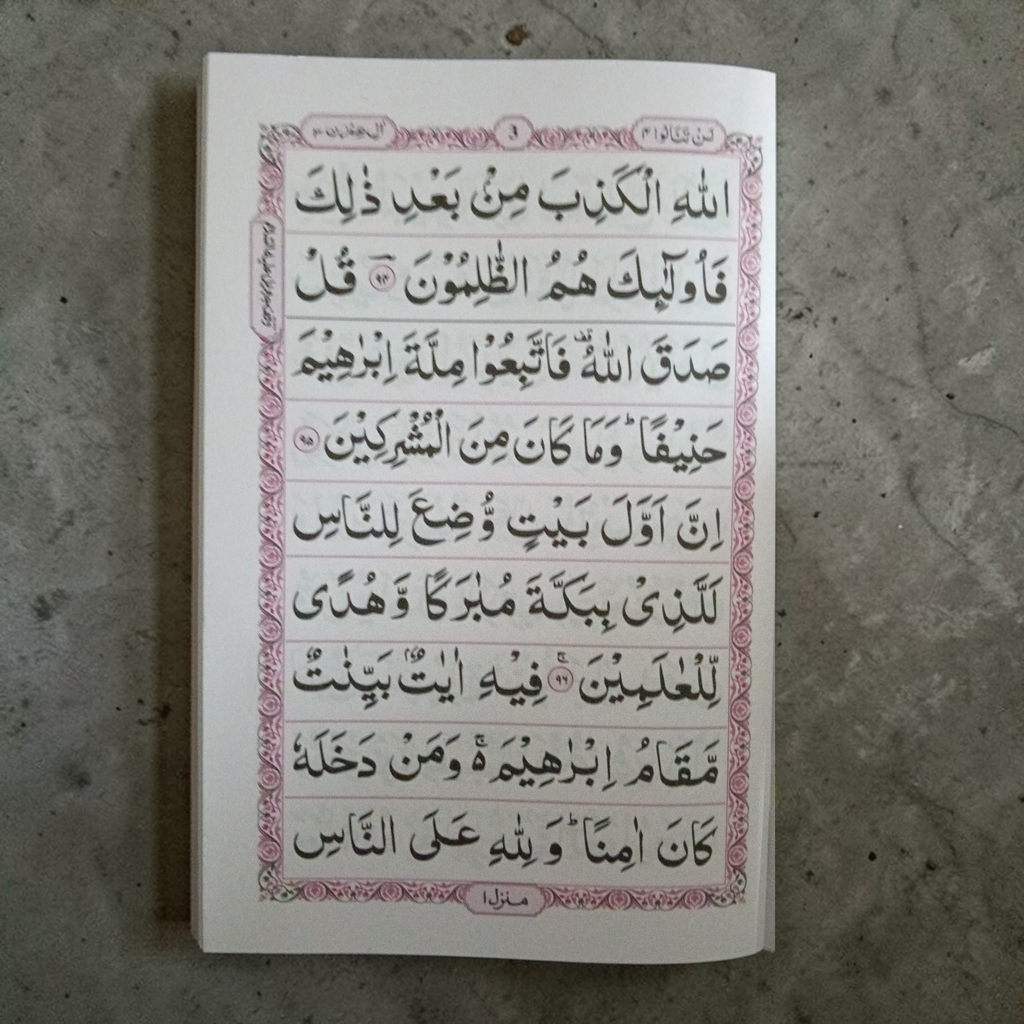 لَنْ تَنَالُوا ۴
3
اٰلِ عِمْرٰن ۳
اللّٰهِ الْكَذِبَ مِنْۢ بَعْدِ ذٰلِكَ
فَاُولٰٓئِكَ هُمُ الظّٰلِمُوْنَ ﴿۹۴﴾ قُلْ
صَدَقَ اللّٰهُ ۗ فَاتَّبِعُوْا مِلَّةَ اِبْرٰهِيْمَ
حَنِيْفًا ؕ وَمَا كَانَ مِنَ الْمُشْرِكِيْنَ ﴿۹۵﴾
اِنَّ اَوَّلَ بَيْتٍ وُّضِعَ لِلنَّاسِ
لَلَّذِىْ بِبَكَّةَ مُبٰرَكًا وَّهُدًى
لِّلْعٰلَمِيْنَ ۚ ﴿۹۶﴾ فِيْهِ اٰيٰتٌۢ بَيِّنٰتٌ
مَّقَامُ اِبْرٰهِيْمَ ۚ۬ وَمَنْ دَخَلَهٗ
كَانَ اٰمِنًا ؕ وَلِلّٰهِ عَلَى النَّاسِ
منزل ۱